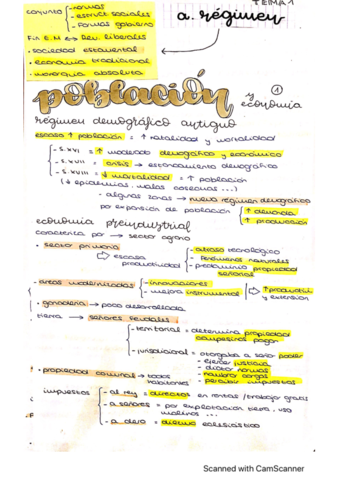 TEMA 1
conjunto
- normas
- estruct sociales
- formas gobierno
a. régimen
Fin E.M ↔ Rev. liberales
• sociedad estamental
• economía tradicional
• monarquía absoluta
población y economía
1
régimen demográfico antiguo
escasa ↑ población = ↑ natalidad y mortalidad
- S. XVI = ↑ moderado demográfico y económico
- S. XVII = crisis → estancamiento demográfico
- S. XVIII = ↓ mortalidad = ↑ población
(↓ epidemias, malas cosechas ...)
- algunas zonas → nuevo régimen demográfico
por expansión de población
↑ demanda
↑ producción
economía preindustrial
caracteriza por → sector agrario
• sector primario
⇒ escasa productividad
- atraso tecnológico
- fenómenos naturales
- predominio propiedad señorial
- áreas modernizadas
- innovaciones
- mejora instrumental
⇒ ↑ productivi
y extensión
• ganadería → poco desarrollada
tierra → señores feudales
- territorial = determina propiedad
campesinos pagan
- jurisdiccional = otorgaba a señor poder
- ejercer justicia
- dictar normas
- nombrar cargos
- percibir impuestos
• propiedad comunal → todos habitantes
impuestos
- al rey = directos en rentas / trabajo gratis
- a señores = por explotación tierra, uso
molinos ...
- a clero = diezmo eclesiástico
Scanned with CamScanner